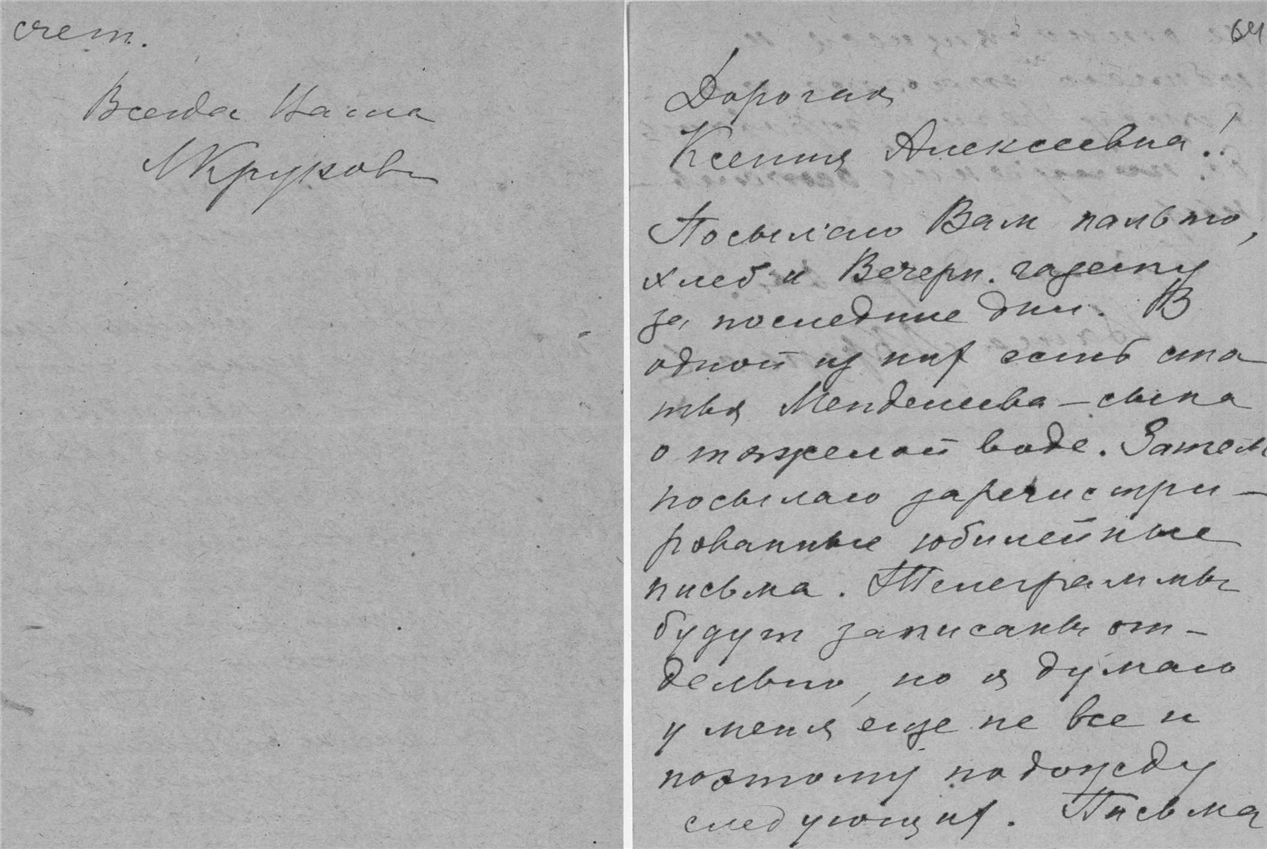 счет.
Всегда Ваша
МКрукова
64
Дорогая
Ксения Алексеевна!
Посылаю Вам пальто,
хлеб и Вечерн. газету
за последние дни. В
одной из них есть ста
тья Менделеева – сына
о тяжелой воде. Затем
посылаю зарегистри–
рованные юбилейные
письма. Телеграммы
будут записаны от–
дельно, но я думаю
у меня еще не все и
поэтому подожду
следующих. Письма